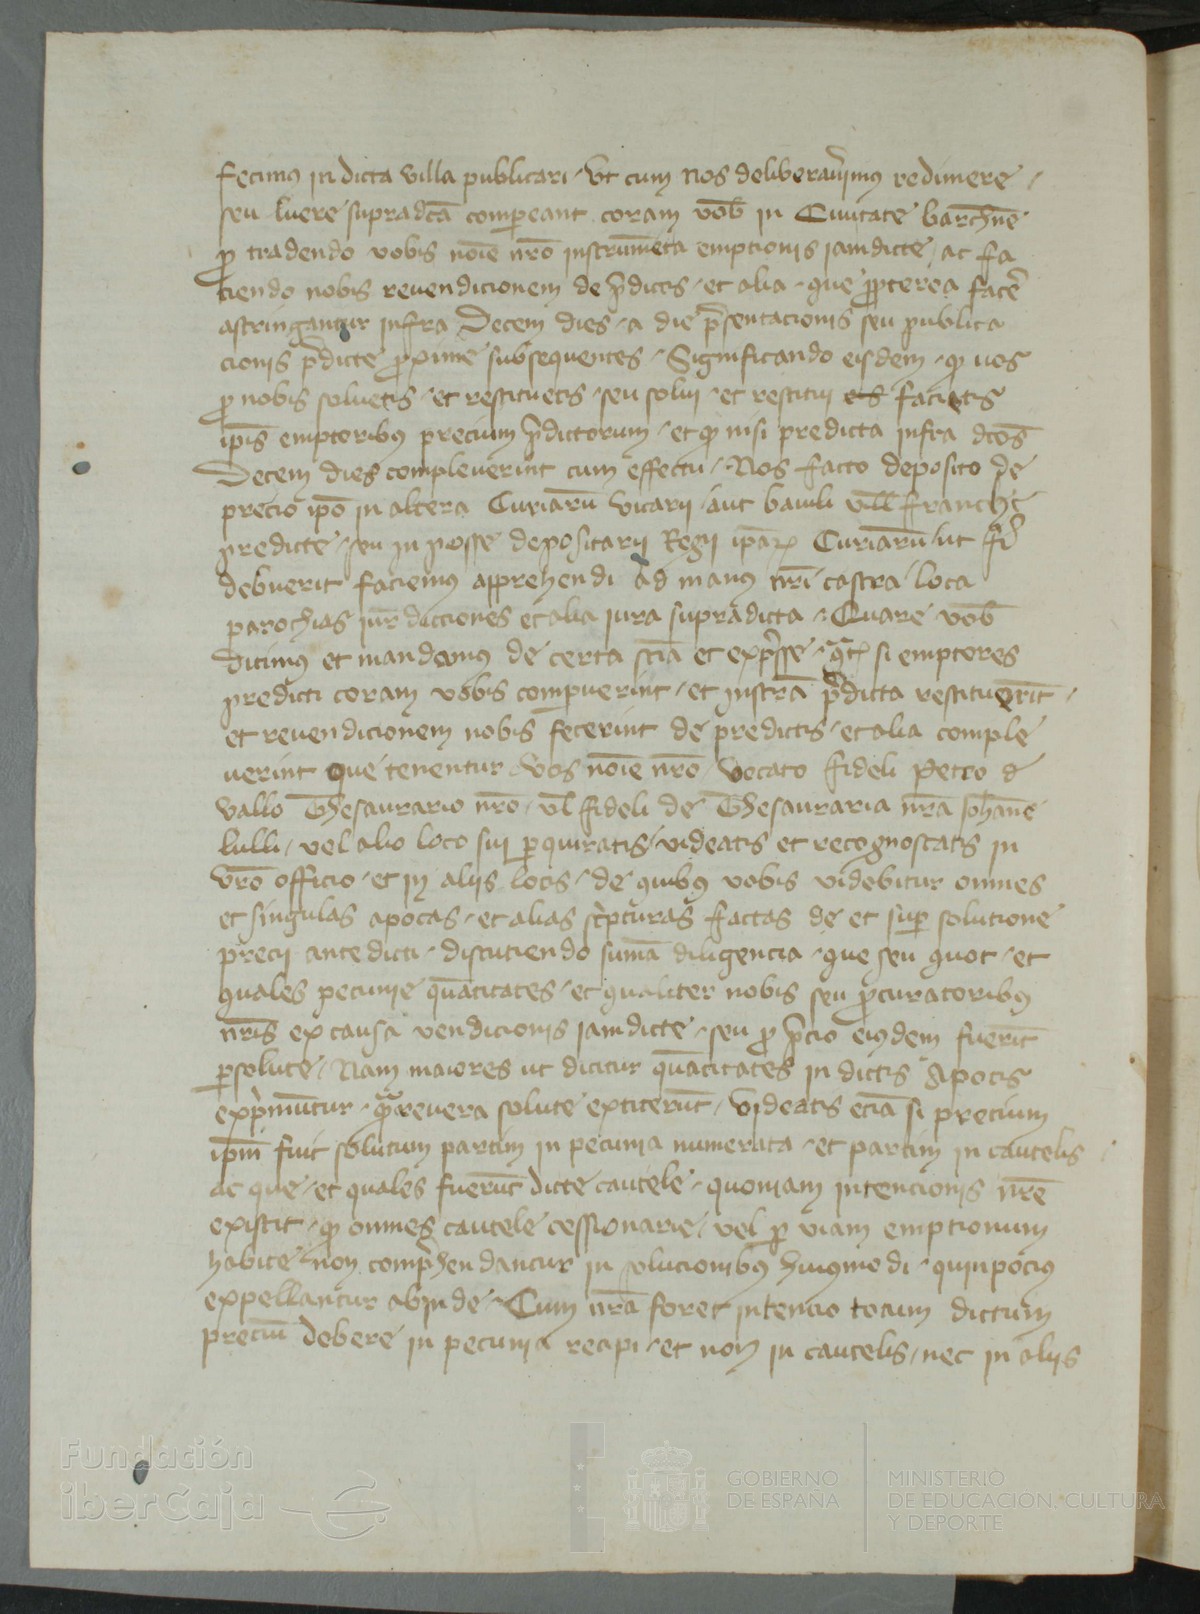 fecimus in dicta villa publicari / ut cum nos deliberaverimus redimere /
seu luere supradcā compeant coram vob in Civitate barchne
p tradendo vobis noīe nro instrumēta emptionis iamdicte / ac fa
ciendo nobis revendicionem de pdictis / et alia / que ppterea facē
astringantur infra Decem dies / a die psentacionis seu publica
cionis pdicte pxime subsequentes / Significando eisdem / q vos
p nobis solvetis / et restituetis / seu solvi / et restitui facietis
ipis emptoribus precium pdictorum / et q nisi predicta infra dcos
Decem dies compleverint cum effectu / Nos facto deposito de
precio ipo in altera Curiarū vicarij / aut baiuli vill franche
predicte / seu in posse depositarij Regij ipaꝝ Curiarū ut fi
debuerit faciemus apprehendi ad manus nri castra loca
parochias iurdicciones et alia iura supradicta / Quare vob
dicimus et mandamus de certa scia et expsse / qtꝝ si emptores
predicti coram vobis compuerint / et instra pdicta restituerīt /
et revendicionem nobis fecerint de predictis / et alia comple
verint que tenentur vos noīe nro / vocato fideli Petro d
vallo Thesaurario nro / vl fideli de Thesauraria nra Johane
lulli / vel alio loco sui pquiratis / videatis et recognoscatis in
vro officio / et in alijs locis / de quibus vobis videbitur omnes
et singulas apocas / et alias scpturas factas de et sup solutione
precij antedicti / discutiendo suma diligencia / que seu quot / et
quales pecunie quātitates / et qualiter nobis seu pcuratoribus
nris ex causa vendicionis iamdicte / seu p pcio eiusdem fuerīt
psolute / Nam maiores ut dicitur quātitates in dictis Apocis
expmūtur / q revera solute extiterūt / Videatis eciā si precium
ipm fuit solutum partim in pecunia numerata / et partim in cautelis
ac que / et quales fuerūt dicte cautele / quoniam intencionis nre
existit / q omnes cautele cessionarie / vel p viam emptionum
habite non comphendantur in solucionibus huiusmodi / quinpocius
expellantur abinde / Cum nra foret intencio totum dictum
preciū debere in pecunia recipi / et non in cautelis / nec in alijs
Fundación
iberCaja
GOBIERNO
DE ESPAÑA
MINISTERIO
DE EDUCACIÓN, CULTURA
Y DEPORTE